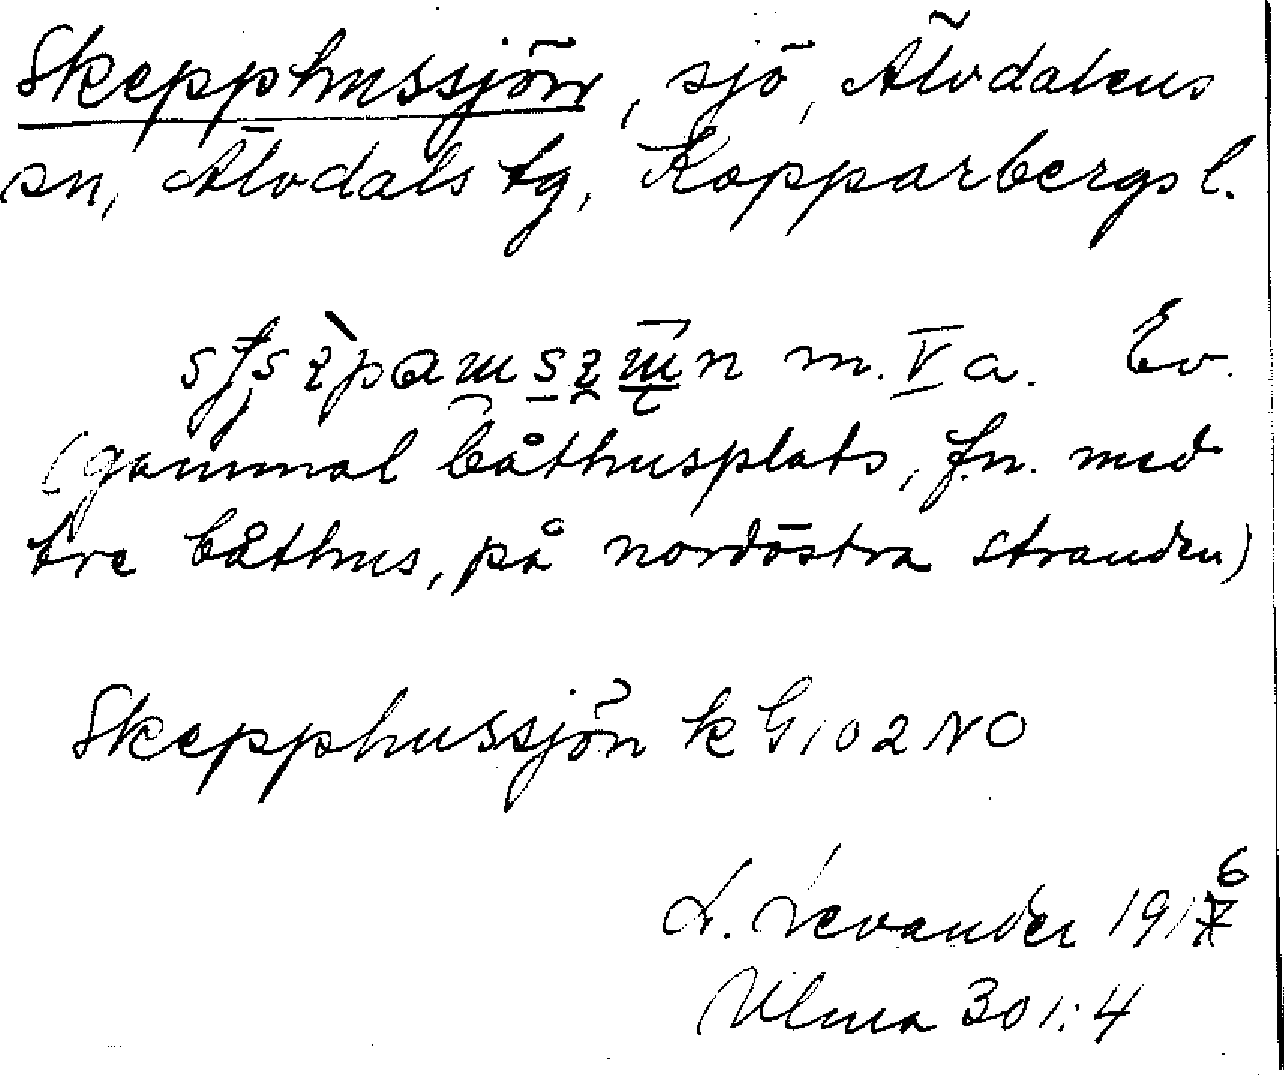 Skepphussjön, sjö, Älvdalens
sn, Älvdals tg, Kopparbergs l.
m. V a. Ev.
(gammal båthusplats, fn. med
tre båthus, på nordöstra stranden)
Skepphussjön k G 102 NO
L. Levander 1916
Ulma 301:4